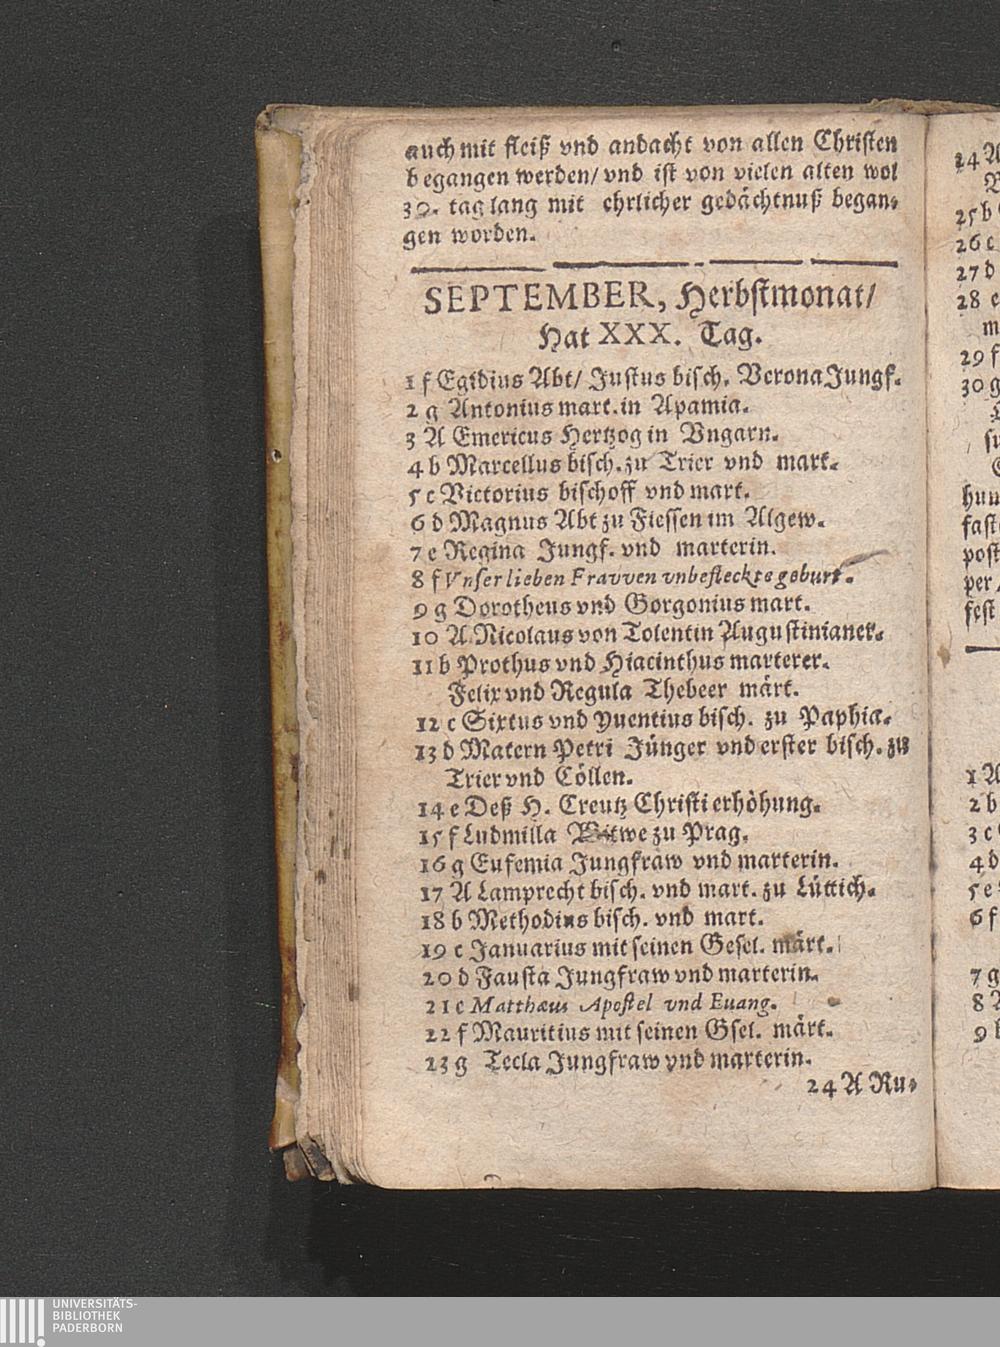 auch mit fleiß vnd andacht von allen Christen
begangen werden/ vnd ist von vielen alten wol
30. tag lang mit ehrlicher gedächtnuß began-
gen worden.
SEPTEMBER, Herbstmonat/
Hat XXX. Tag.
1 f Egidius Abt/ Justus bisch. Verona Jungf.
2 g Antonius mart. in Apamia.
3 A Emericus Hertzog in Vngarn.
4 b Marcellus bisch. zu Trier vnd mart.
5 c Victorius bischoff vnd mart.
6 d Magnus Abt zu Fiessen im Algew.
7 e Regina Jungf. vnd marterin.
8 f Vnser lieben Fravven vnbefleckte geburt.
9 g Dorotheus vnd Gorgonius mart.
10 A Nicolaus von Tolentin Augustinianer.
11 b Prothus vnd Hiacinthus marterer.
Felix vnd Regula Thebeer märt.
12 c Sixtus vnd Yuentius bisch. zu Paphia.
13 d Matern Petri Jünger vnd erster bisch. zu
Trier vnd Cöllen.
14 e Deß H. Creutz Christi erhöhung.
15 f Ludmilla Witwe zu Prag.
16 g Eufemia Jungfraw vnd marterin.
17 A Lamprecht bisch. vnd mart. zu Lüttich.
18 b Methodius bisch. vnd mart.
19 c Januarius mit seinen Gesel. märt.
20 d Fausta Jungfraw vnd marterin.
21 e Matthæus Apostel vnd Euang.
22 f Mauritius mit seinen Gsel. märt.
23 g Tecla Jungfraw vnd marterin.
24 A Ru-
24 A
25 b
26 c
27 d
28 e
m
29 f
30 g
hun
fast
post
per
fest
1 A
2 b
3 c
4 d
5 e
6 f
7 g
8 A
9 b
UNIVERSITÄTS-
BIBLIOTHEK
PADERBORN